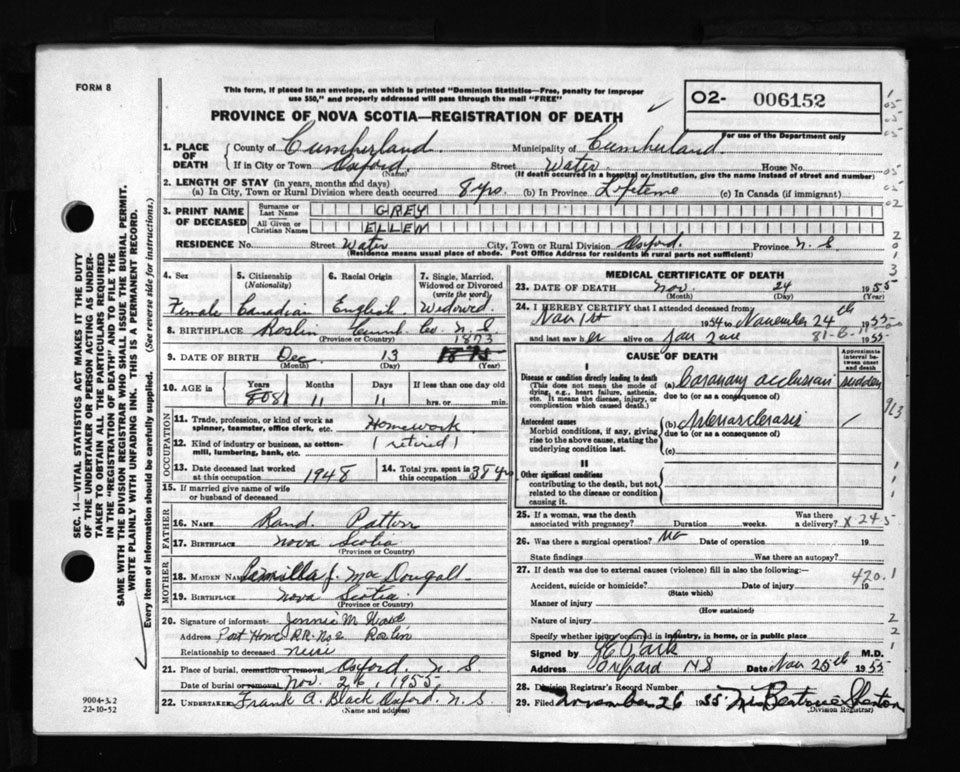 FORM 8
This form, if placed in an envelope, on which is printed "Dominion Statistics—Free, penalty for improper
use $50," and properly addressed will pass through the mail "FREE"
O2- 006152
For use of the Department only
PROVINCE OF NOVA SCOTIA—REGISTRATION OF DEATH
1. PLACE OF DEATH
County of Cumberland Municipality of Cumberland
If in City or Town Oxford Street Water House No.
(Name) (If death occurred in a hospital or institution, give the name instead of street and number)
2. LENGTH OF STAY (in years, months and days)
(a) In City, Town or Rural Division where death occurred 8 yrs. (b) In Province Lifetime (c) In Canada (if immigrant)
3. PRINT NAME OF DECEASED
Surname or Last Name GREY
All Given or Christian Names ELLEN
RESIDENCE No. Street Water City, Town or Rural Division Oxford. Province N.S
(Residence means usual place of abode. Post Office Address for residents in rural parts not sufficient)
4. Sex 5. Citizenship (Nationality) 6. Racial Origin 7. Single, Married, Widowed or Divorced (write the word)
Female Canadian English Widowed
8. BIRTHPLACE Roslin Cumb. Co. N.S
(Province or Country)
1873
9. DATE OF BIRTH Dec. 13
(Month) (Day) (Year)
10. AGE in Years Months Days If less than one day old
11 11 hrs. or min.
OCCUPATION
11. Trade, profession, or kind of work as spinner, teamster, office clerk, etc. Homework
12. Kind of industry or business, as cotton-mill, lumbering, bank, etc. (retired)
13. Date deceased last worked at this occupation 1948 14. Total yrs. spent in this occupation 38 yrs
15. If married give name of wife or husband of deceased
FATHER
16. NAME Rand. Patton
17. BIRTHPLACE Nova Scotia
(Province or Country)
MOTHER
18. MAIDEN NAME J. MacDougall
19. BIRTHPLACE Nova Scotia
(Province or Country)
20. Signature of informant Jennie M.
Address Port Howe RR. No 2 Roslin
Relationship to deceased niece
21. Place of burial, cremation or removal Oxford, N.S
Date of burial or removal Nov. 26, 1955
22. UNDERTAKER Frank A. Black Oxford. N.S.
(Name and address)
MEDICAL CERTIFICATE OF DEATH
23. DATE OF DEATH Nov. 24 1955
(Month) (Day) (Year)
24. I HEREBY CERTIFY that I attended deceased from
Nov 1st 1954 to November 24th 1955
and last saw her alive on 1955
CAUSE OF DEATH
Approximate interval between onset and death
I
Disease or condition directly leading to death (a) Coronary occlusion sudden
(This does not mean the mode of dying, e.g., heart failure, asthenia, etc. It means the disease, injury, or complication which caused death.)
due to (or as a consequence of)
Antecedent causes (b) Arteriosclerosis
Morbid conditions, if any, giving rise to the above cause, stating the underlying condition last.
due to (or as a consequence of)
(c)
II
Other significant conditions
contributing to the death, but not related to the disease or condition causing it.
25. If a woman, was the death associated with pregnancy? Duration weeks. Was there a delivery? X 245
26. Was there a surgical operation? No Date of operation 19
State findings Was there an autopsy?
27. If death was due to external causes (violence) fill in also the following:—
420.1
Accident, suicide or homicide? Date of injury 19
(State which)
Manner of injury
(How sustained)
Nature of injury
Specify whether injury occurred in industry, in home, or in public place
Signed by Park M.D.
Address Oxford NS Date Nov 25th 1955
28. Division Registrar's Record Number
29. Filed November 26 1955 Mrs Beatrice
(Division Registrar)
SEC. 14—VITAL STATISTICS ACT MAKES IT THE DUTY
OF THE UNDERTAKER OR PERSON ACTING AS UNDER-
TAKER TO OBTAIN ALL THE PARTICULARS REQUIRED
IN THE "REGISTRATION OF DEATH" AND TO FILE THE
SAME WITH THE DIVISION REGISTRAR WHO SHALL ISSUE THE BURIAL PERMIT.
WRITE PLAINLY WITH UNFADING INK. THIS IS A PERMANENT RECORD.
Every item of information should be carefully supplied. (See reverse side for instructions.)
9004-3.2
22-10-52